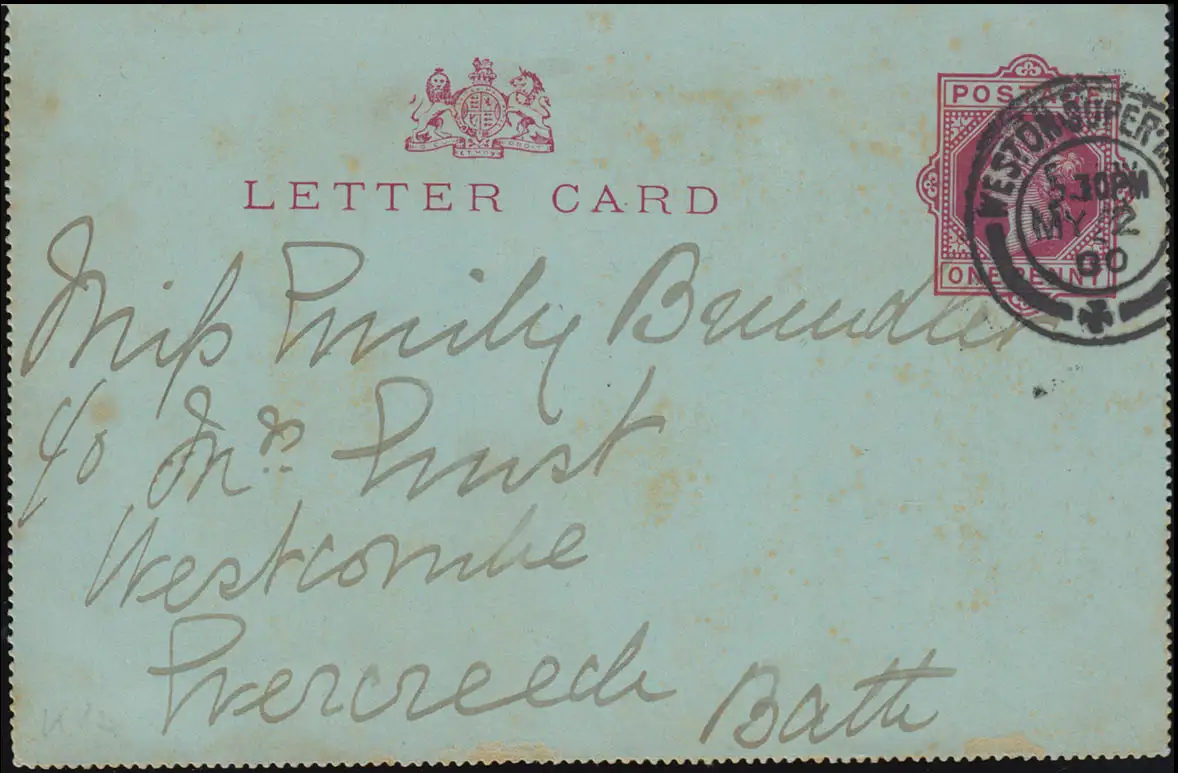 LETTER CARD
POSTAGE
ONE PENNY
WESTON-SUPER-M
5.30PM
MY 2
00
Miss Emily
c/o Mrs
Westcombe
Evercreech Bath